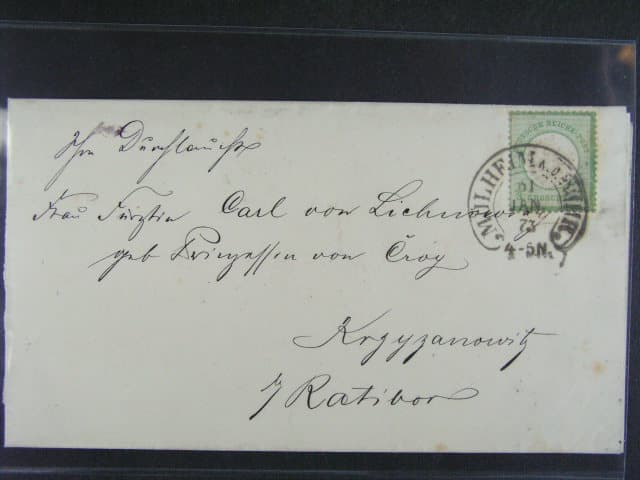 Ihre Durchlaucht
Frau Fürstin Carl von Lichnowsky
geb Prinzessin von Croÿ
Krzyzanowitz
b/ Ratibor
MÜLHEIM A.D. RUHR.
31
JAN
73
4-5N.